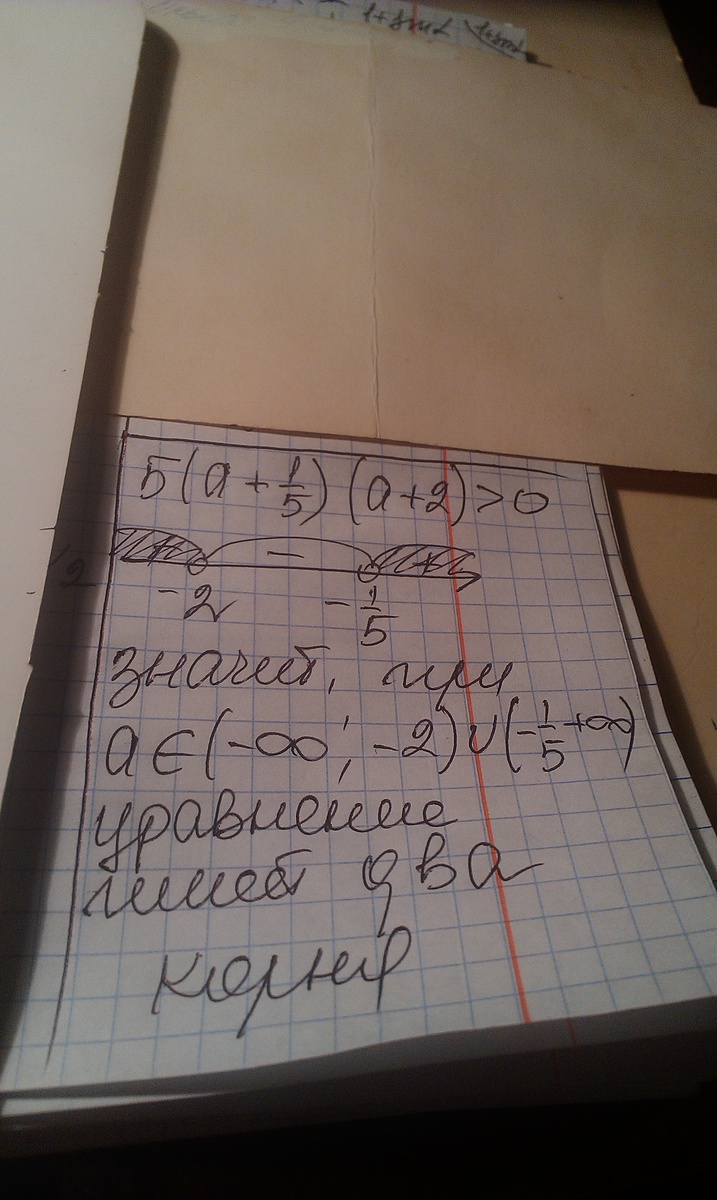 1+sin2
5(a + 1/5) (a+2) > 0
+ − +
-2 -1/5
значит, при
a ∈ (-∞; -2) ∪ (-1/5 +∞)
уравнение
имеет два
корня